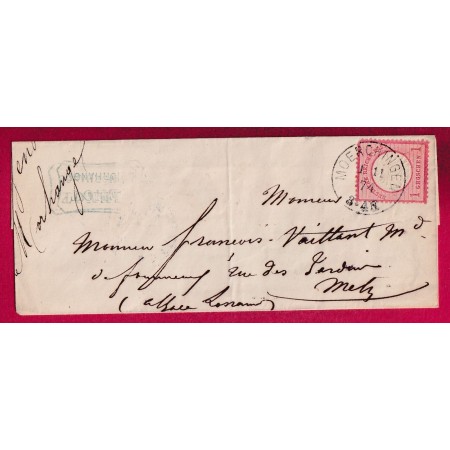 Morhange
MOERCHINGEN
11
74
1 GROSCHEN 1
Monsieur
Monsieur Francois-Vaillant Md
rue des Jardins
Metz
(Alsace Lorraine)